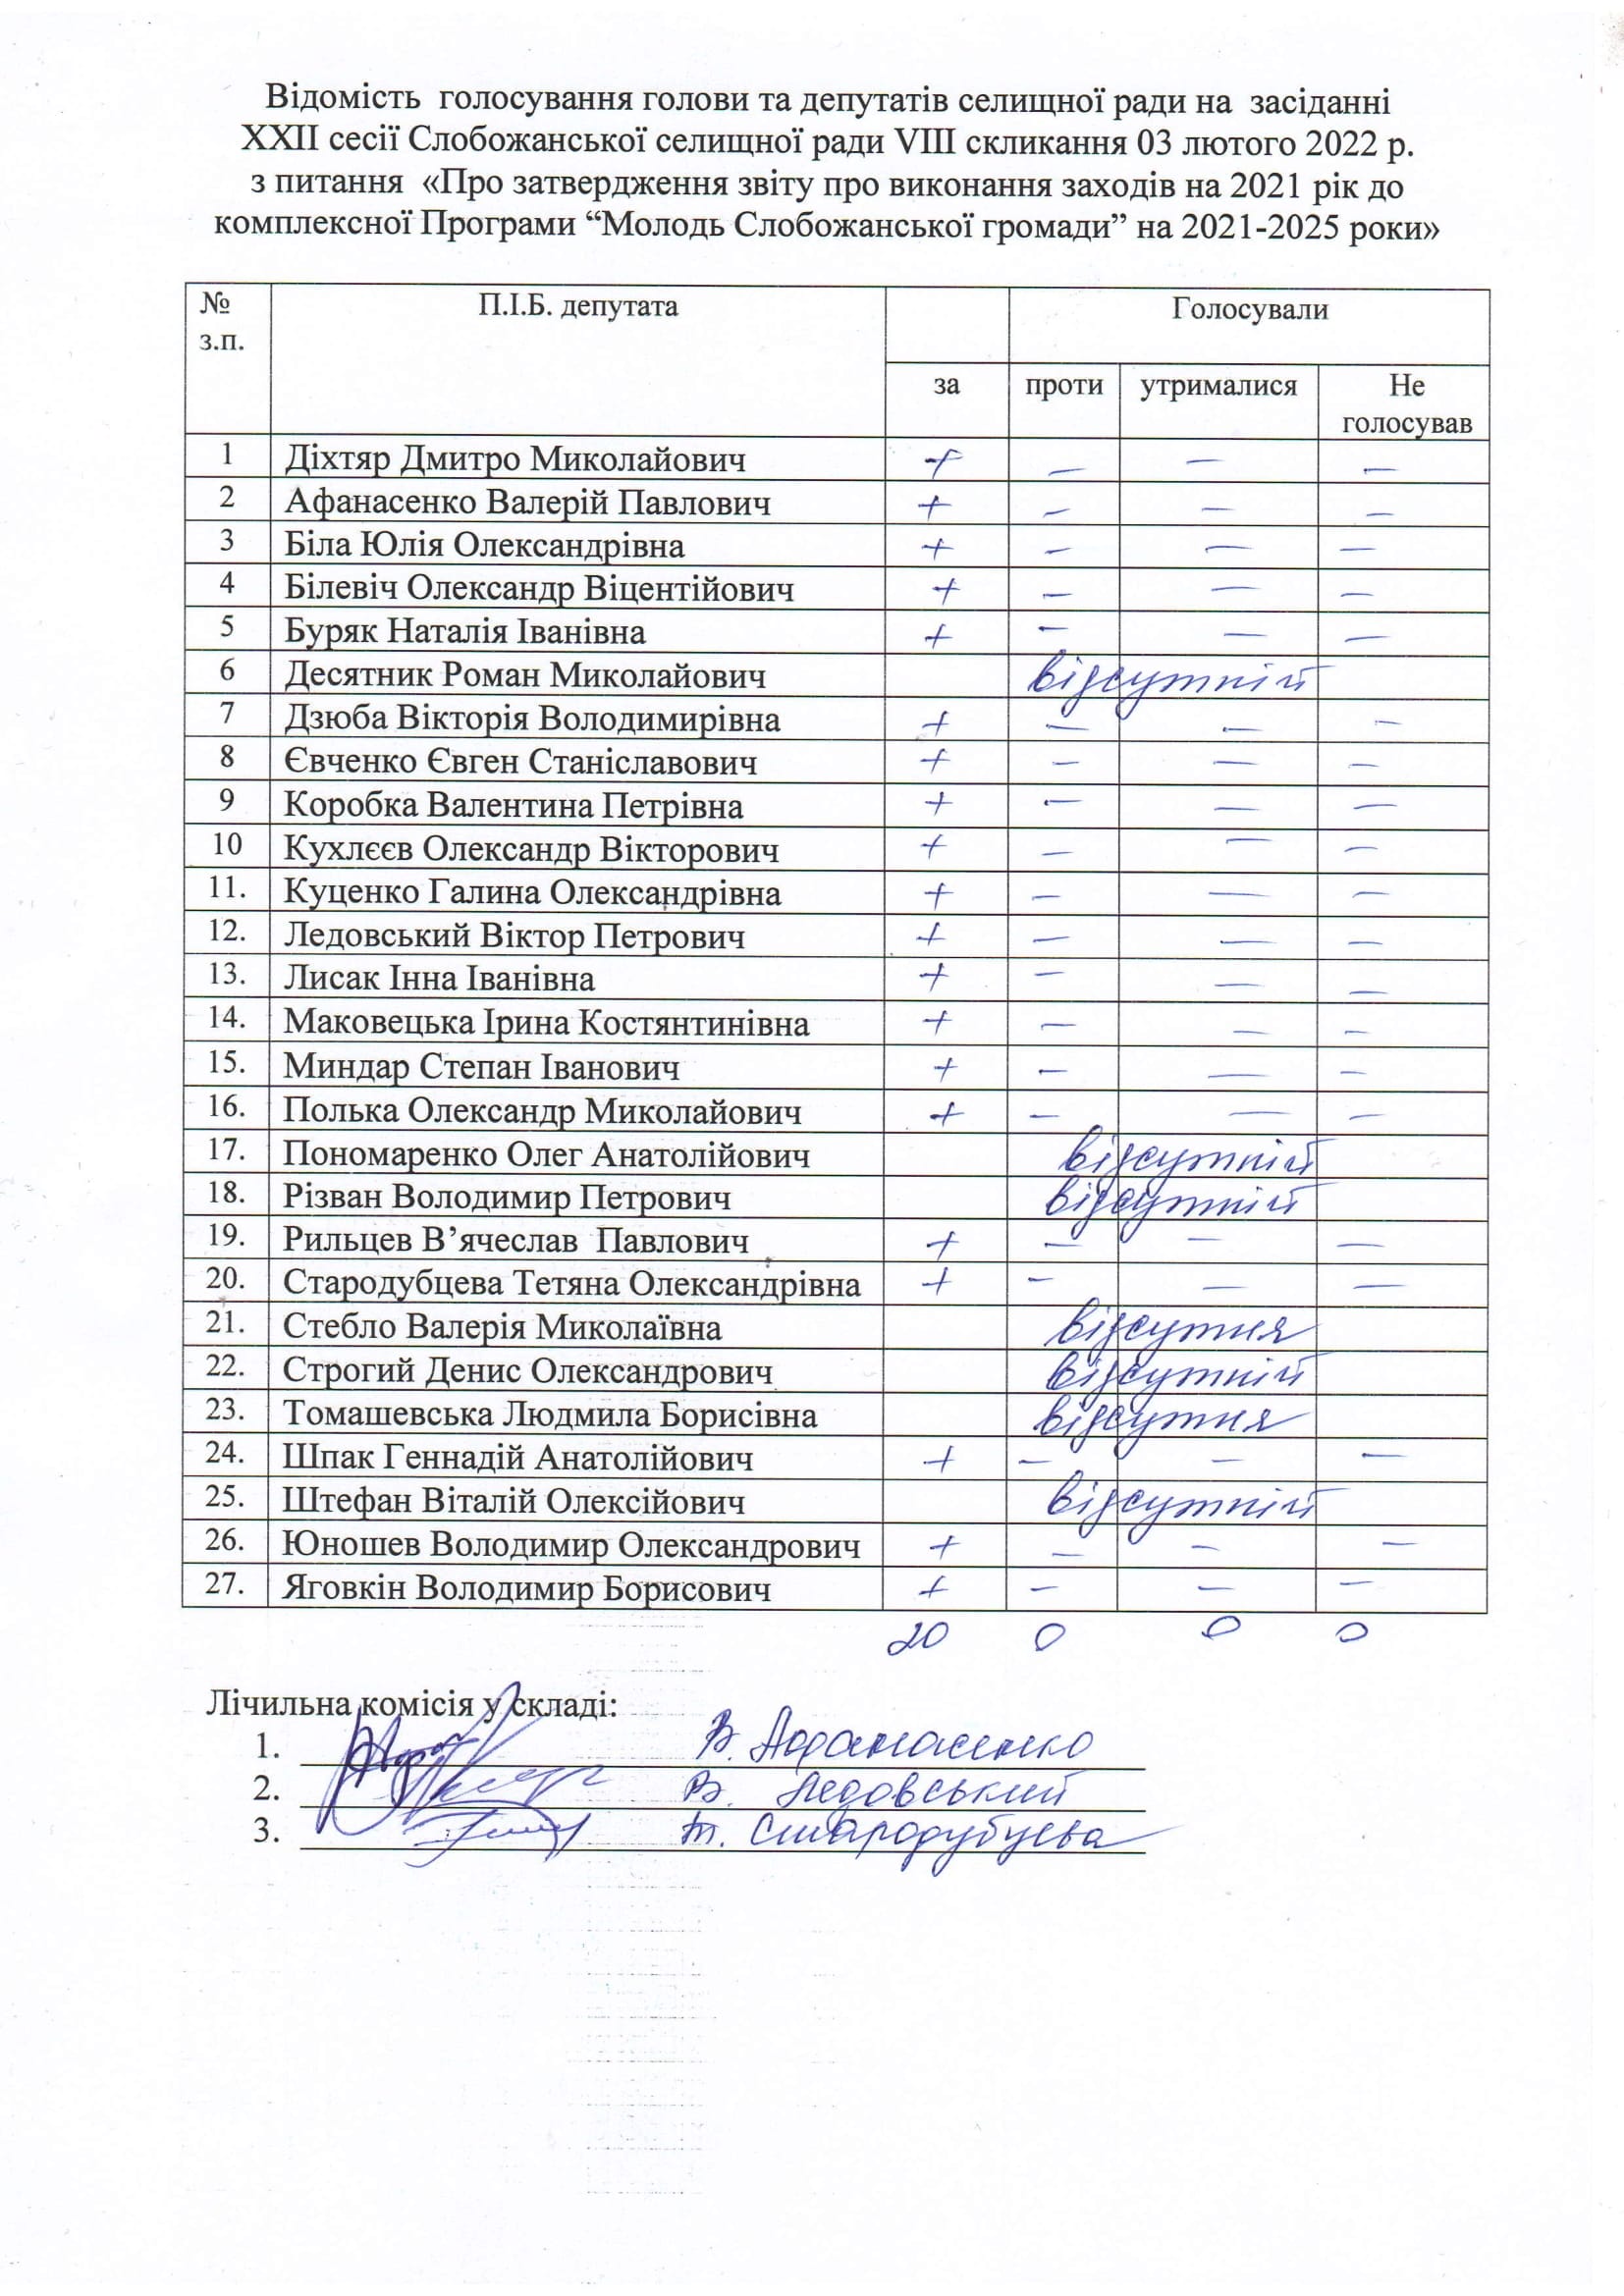 Відомість голосування голови та депутатів селищної ради на засіданні
XXII сесії Слобожанської селищної ради VIII скликання 03 лютого 2022 р.
з питання «Про затвердження звіту про виконання заходів на 2021 рік до
комплексної Програми “Молодь Слобожанської громади” на 2021-2025 роки»
№ з.п. П.І.Б. депутата Голосували
за проти утрималися Не голосував
1 Діхтяр Дмитро Миколайович + – – –
2 Афанасенко Валерій Павлович + – – –
3 Біла Юлія Олександрівна + – – –
4 Білевіч Олександр Віцентійович + – – –
5 Буряк Наталія Іванівна + – – –
6 Десятник Роман Миколайович відсутній
7 Дзюба Вікторія Володимирівна + – – –
8 Євченко Євген Станіславович + – – –
9 Коробка Валентина Петрівна + – – –
10 Кухлєєв Олександр Вікторович + – – –
11. Куценко Галина Олександрівна + – – –
12. Ледовський Віктор Петрович + – – –
13. Лисак Інна Іванівна + – – –
14. Маковецька Ірина Костянтинівна + – – –
15. Миндар Степан Іванович + – – –
16. Полька Олександр Миколайович + – – –
17. Пономаренко Олег Анатолійович відсутній
18. Різван Володимир Петрович відсутній
19. Рильцев В’ячеслав Павлович + – – –
20. Стародубцева Тетяна Олександрівна + – – –
21. Стебло Валерія Миколаївна відсутня
22. Строгий Денис Олександрович відсутній
23. Томашевська Людмила Борисівна відсутня
24. Шпак Геннадій Анатолійович + – – –
25. Штефан Віталій Олексійович відсутній
26. Юношев Володимир Олександрович + – – –
27. Яговкін Володимир Борисович + – – –
20 0 0 0
Лічильна комісія у складі:
1. В. Афанасенко
2. В. Ледовський
3. Т. Стародубцева